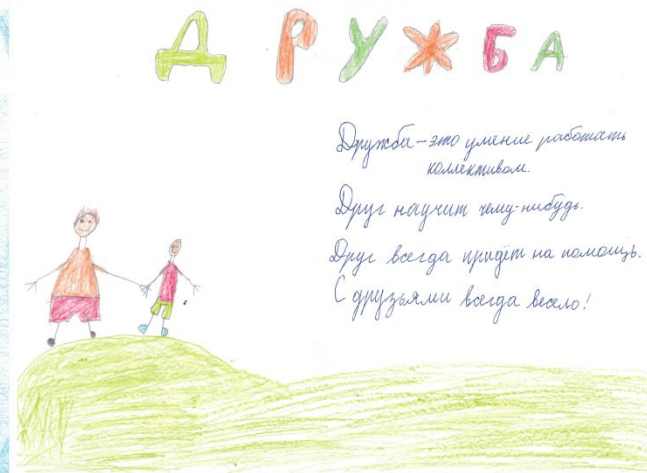 ДРУЖБА
Дружба – это умение работать
коллективом.
Друг научит чему-нибудь.
Друг всегда придёт на помощь.
С друзьями всегда весело!